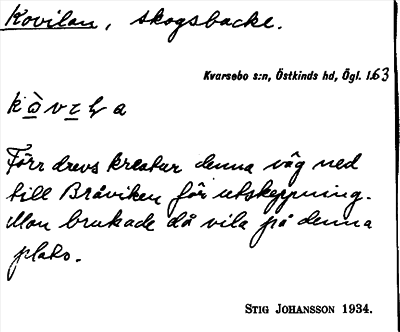 Kovilan, skogsbacke.
Kvarsebo s:n, Östkinds hd, Ögl. 1.63
Förr drevs kreatur denna väg ned
till Bråviken för utskeppning.
Man brukade då vila på denna
plats.
STIG JOHANSSON 1934.